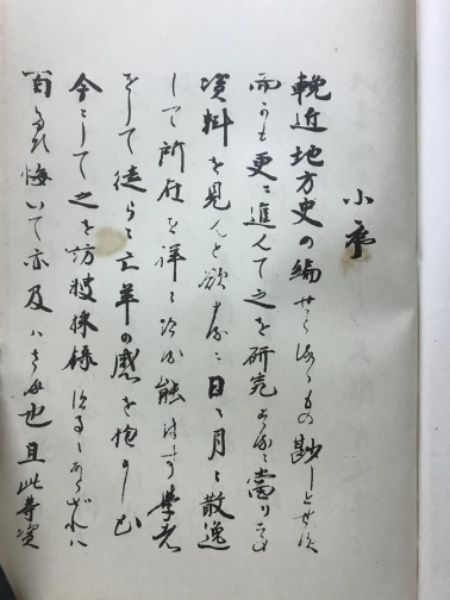 小序
輓近地方史の編せらるゝもの尠しとせず
而かも更に進んで之を研究するに當り之が
資料を見んと欲するに日に月に散逸
して所在を詳にする能はず學者
をして徒らに亡羊の感を抱かしむ
今にして之を訪捜採録するにあらざれば
百年悔いて亦及ばざる也且此等資